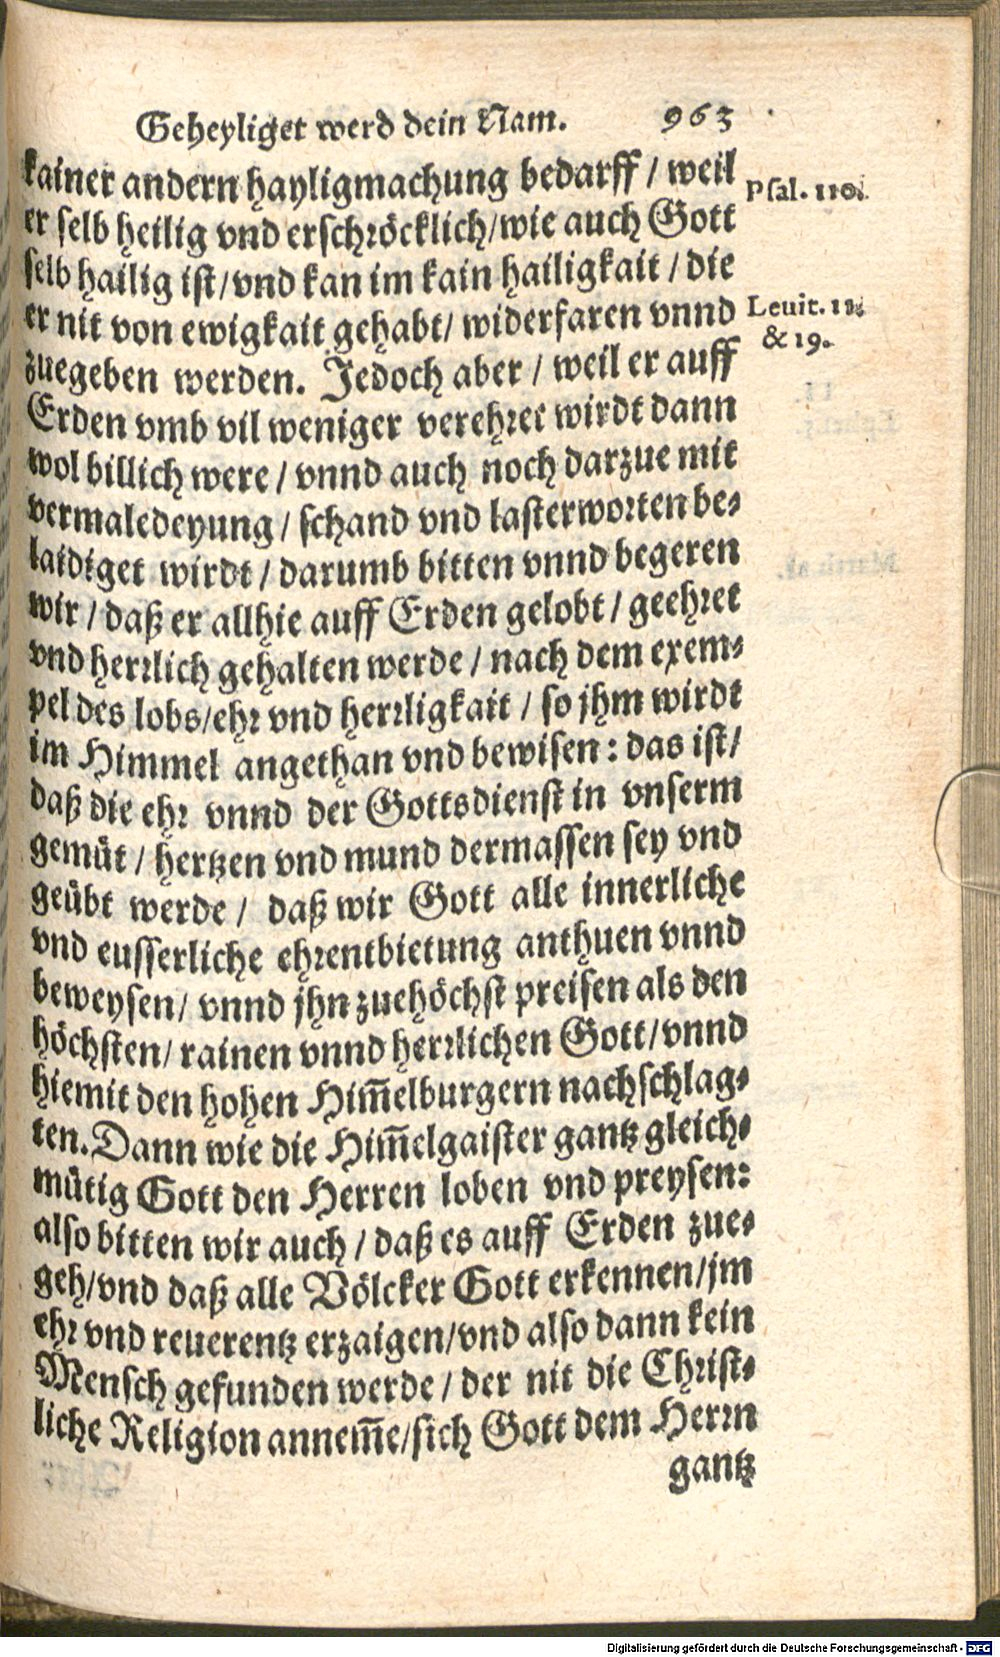 Geheyliget werd dein Nam. 963
kainer andern hayligmachung bedarff / weil
Psal. 110.
er selb heilig vnd erschröcklich/wie auch Gott
selb hailig ist/vnd kan im kain hailigkait / die
er nit von ewigkait gehabt/ widerfaren vnnd
Leuit. 11.
& 19.
zuegeben werden. Jedoch aber / weil er auff
Erden vmb vil weniger verehret wirdt dann
wol billich were / vnnd auch noch darzue mit
vermaledeyung / schand vnd lasterworten be-
laidiget wirdt / darumb bitten vnnd begeren
wir / daß er allhie auff Erden gelobt / geehret
vnd herrlich gehalten werde / nach dem exem-
pel des lobs/ehr vnd herrligkait / so jhm wirdt
im Himmel angethan vnd bewisen: das ist/
daß die ehr vnnd der Gottsdienst in vnserm
gemüt / hertzen vnd mund dermassen sey vnd
geübt werde / daß wir Gott alle innerliche
vnd eusserliche ehrentbietung anthuen vnnd
beweysen/ vnnd jhn zuehöchst preisen als den
höchsten/ rainen vnnd herrlichen Gott/vnnd
hiemit den hohen Him̃elburgern nachschlag-
ten. Dann wie die Him̃elgaister gantz gleich-
mütig Gott den Herren loben vnd preysen:
also bitten wir auch / daß es auff Erden zue-
geh/vnd daß alle Völcker Gott erkennen/jm
ehr vnd reuerentz erzaigen/vnd also dann kein
Mensch gefunden werde / der nit die Christ-
liche Religion annem̃e/sich Gott dem Herrn
gantz
Digitalisierung gefördert durch die Deutsche Forschungsgemeinschaft - DFG